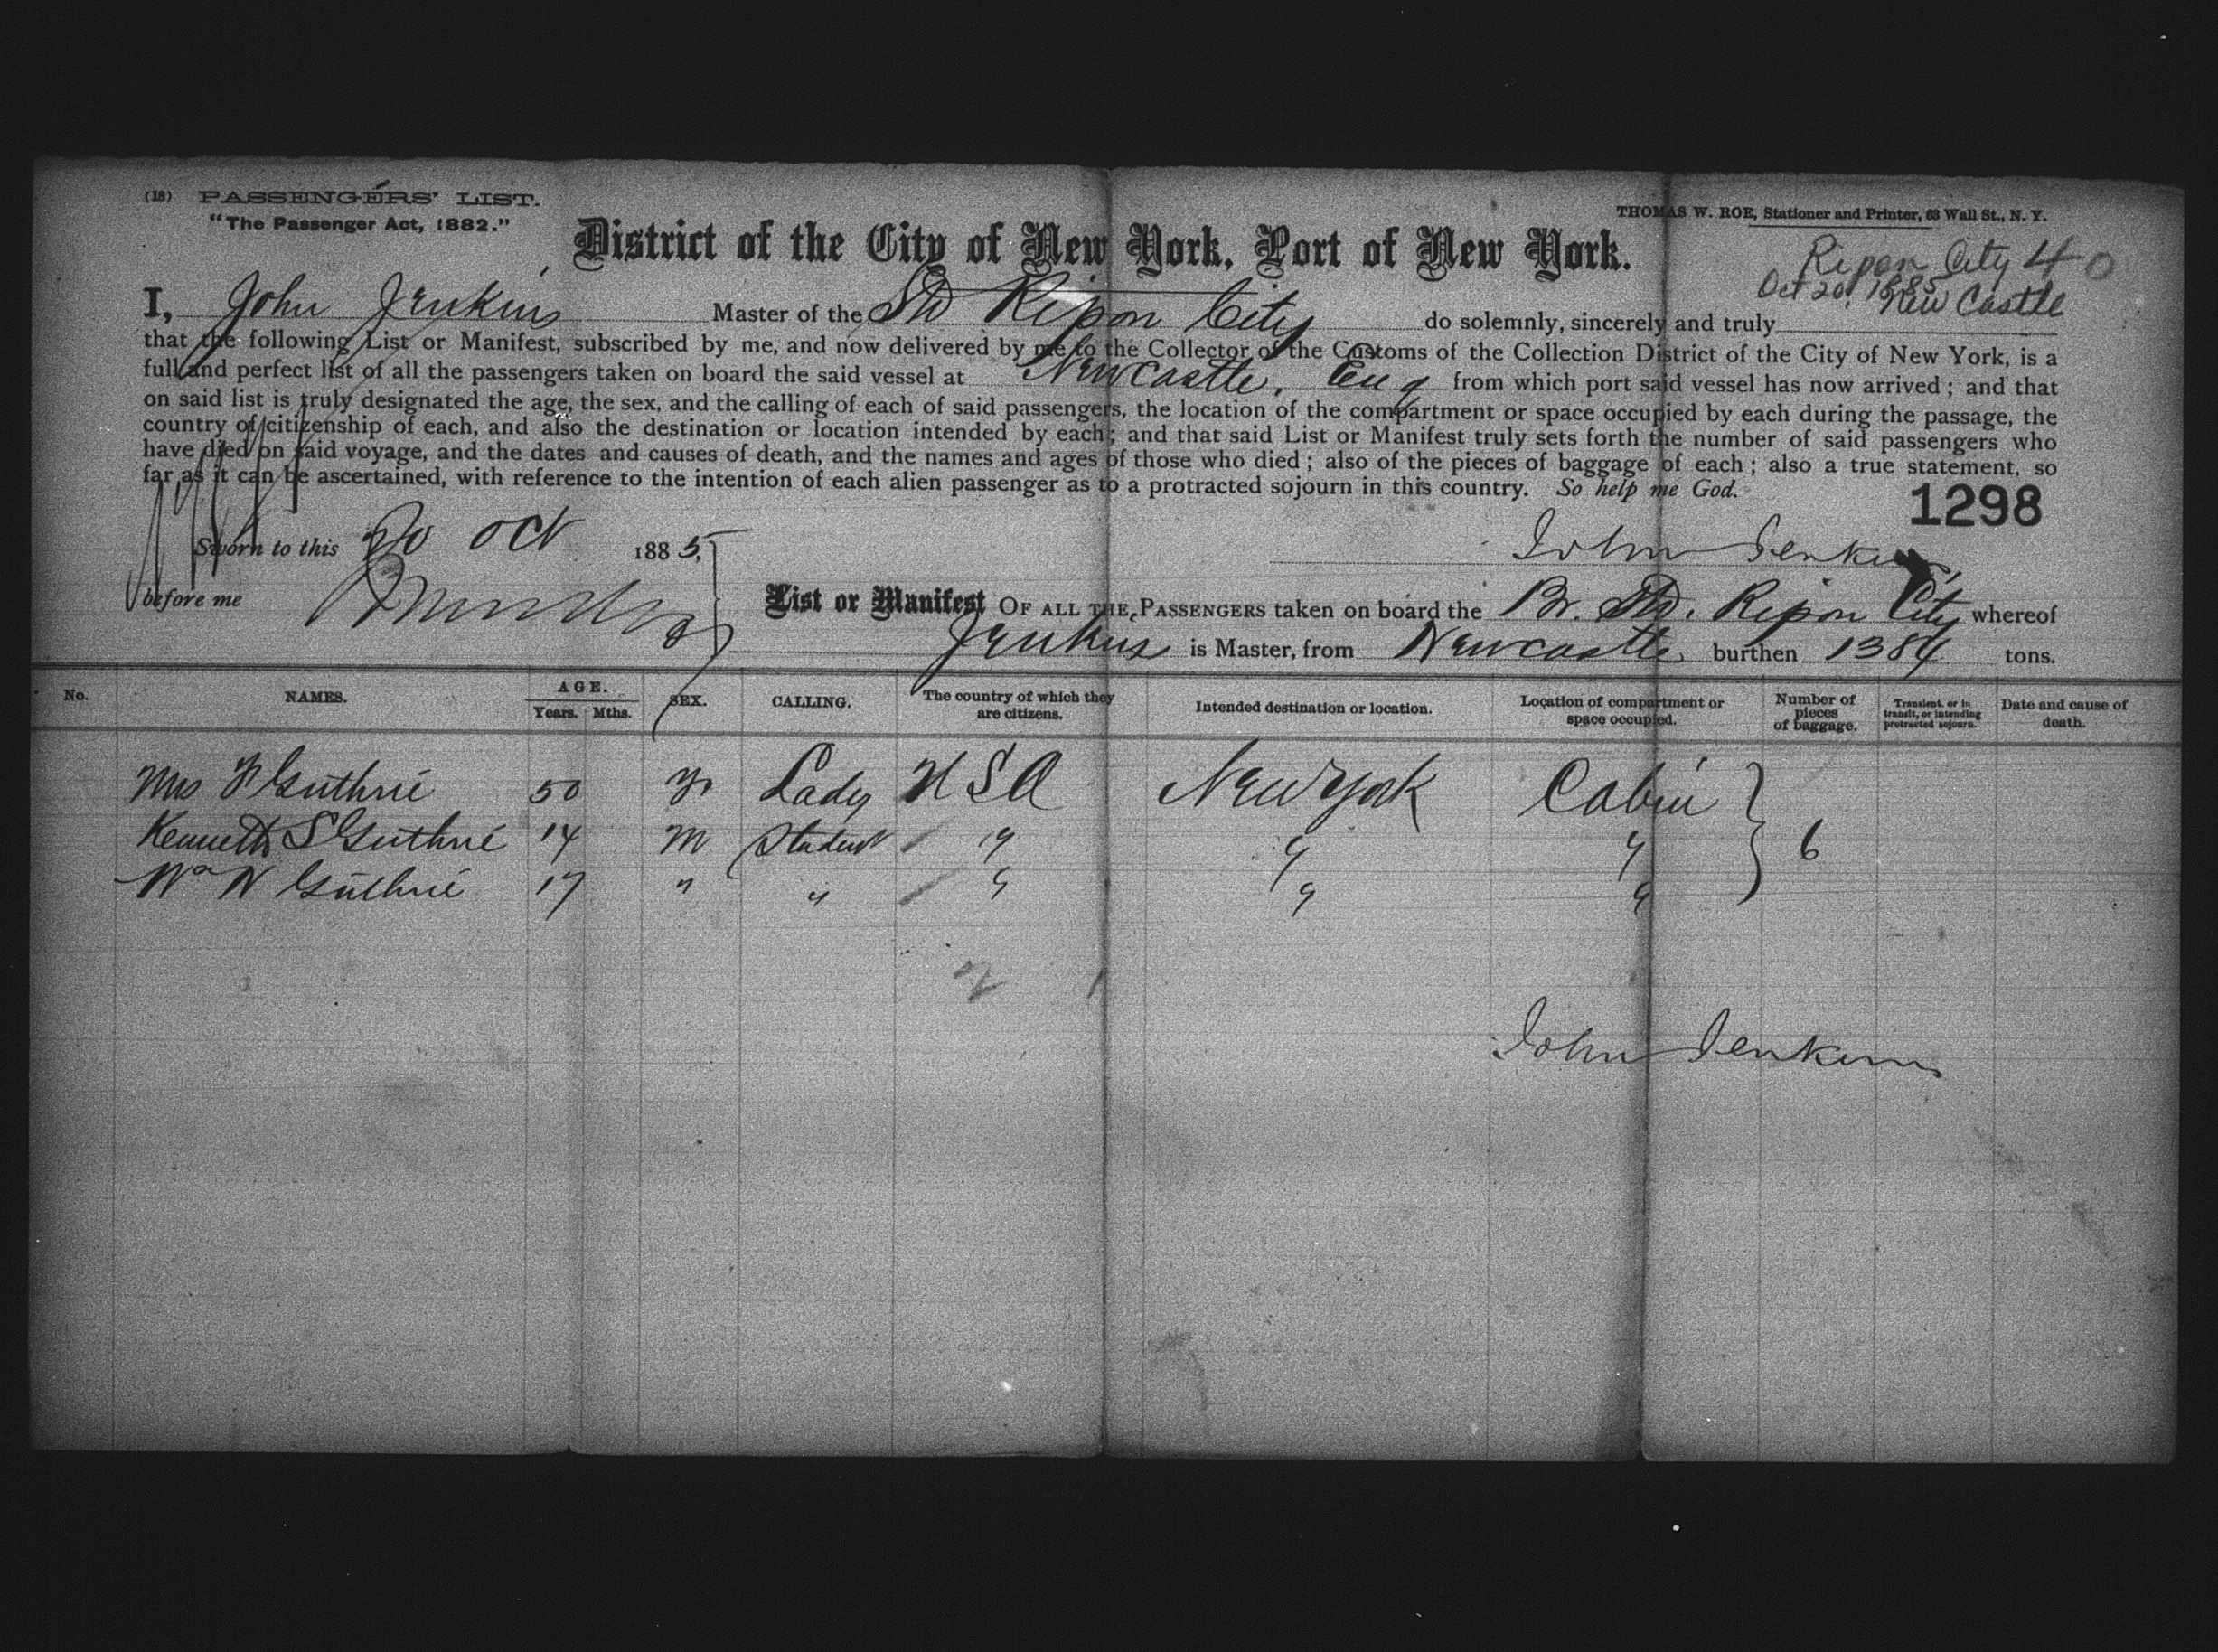 (18) PASSENGERS' LIST.
"The Passenger Act, 1882."
THOMAS W. ROE, Stationer and Printer, 63 Wall St., N. Y.
District of the City of New York, Port of New York.
Ripon City 40
Oct 20, 1885
New Castle
I, John Jenkins Master of the Str Ripon City do solemnly, sincerely and truly
that the following List or Manifest, subscribed by me, and now delivered by me to the Collector of the Customs of the Collection District of the City of New York, is a
full and perfect list of all the passengers taken on board the said vessel at Newcastle, Eng from which port said vessel has now arrived; and that
on said list is truly designated the age, the sex, and the calling of each of said passengers, the location of the compartment or space occupied by each during the passage, the
country of citizenship of each, and also the destination or location intended by each; and that said List or Manifest truly sets forth the number of said passengers who
have died on said voyage, and the dates and causes of death, and the names and ages of those who died; also of the pieces of baggage of each; also a true statement, so
far as it can be ascertained, with reference to the intention of each alien passenger as to a protracted sojourn in this country. So help me God.
1298
Sworn to this 20 Oct 1885,
John Jenkins
before me
List or Manifest OF ALL THE PASSENGERS taken on board the Br. Str. Ripon City whereof
Jenkins is Master, from Newcastle burthen 1384 tons.
No. NAMES. AGE. Years. Mths. SEX. CALLING. The country of which they are citizens. Intended destination or location. Location of compartment or space occupied. Number of pieces of baggage. Transient, or in transit, or intending protracted sojourn. Date and cause of death.
Mrs F Guthrie 50 F Lady U S A New York Cabin
Kenneth S Guthrie 14 M Student " " " 6
Wm N Guthrie 17 " " " " "
2 1
John Jenkins